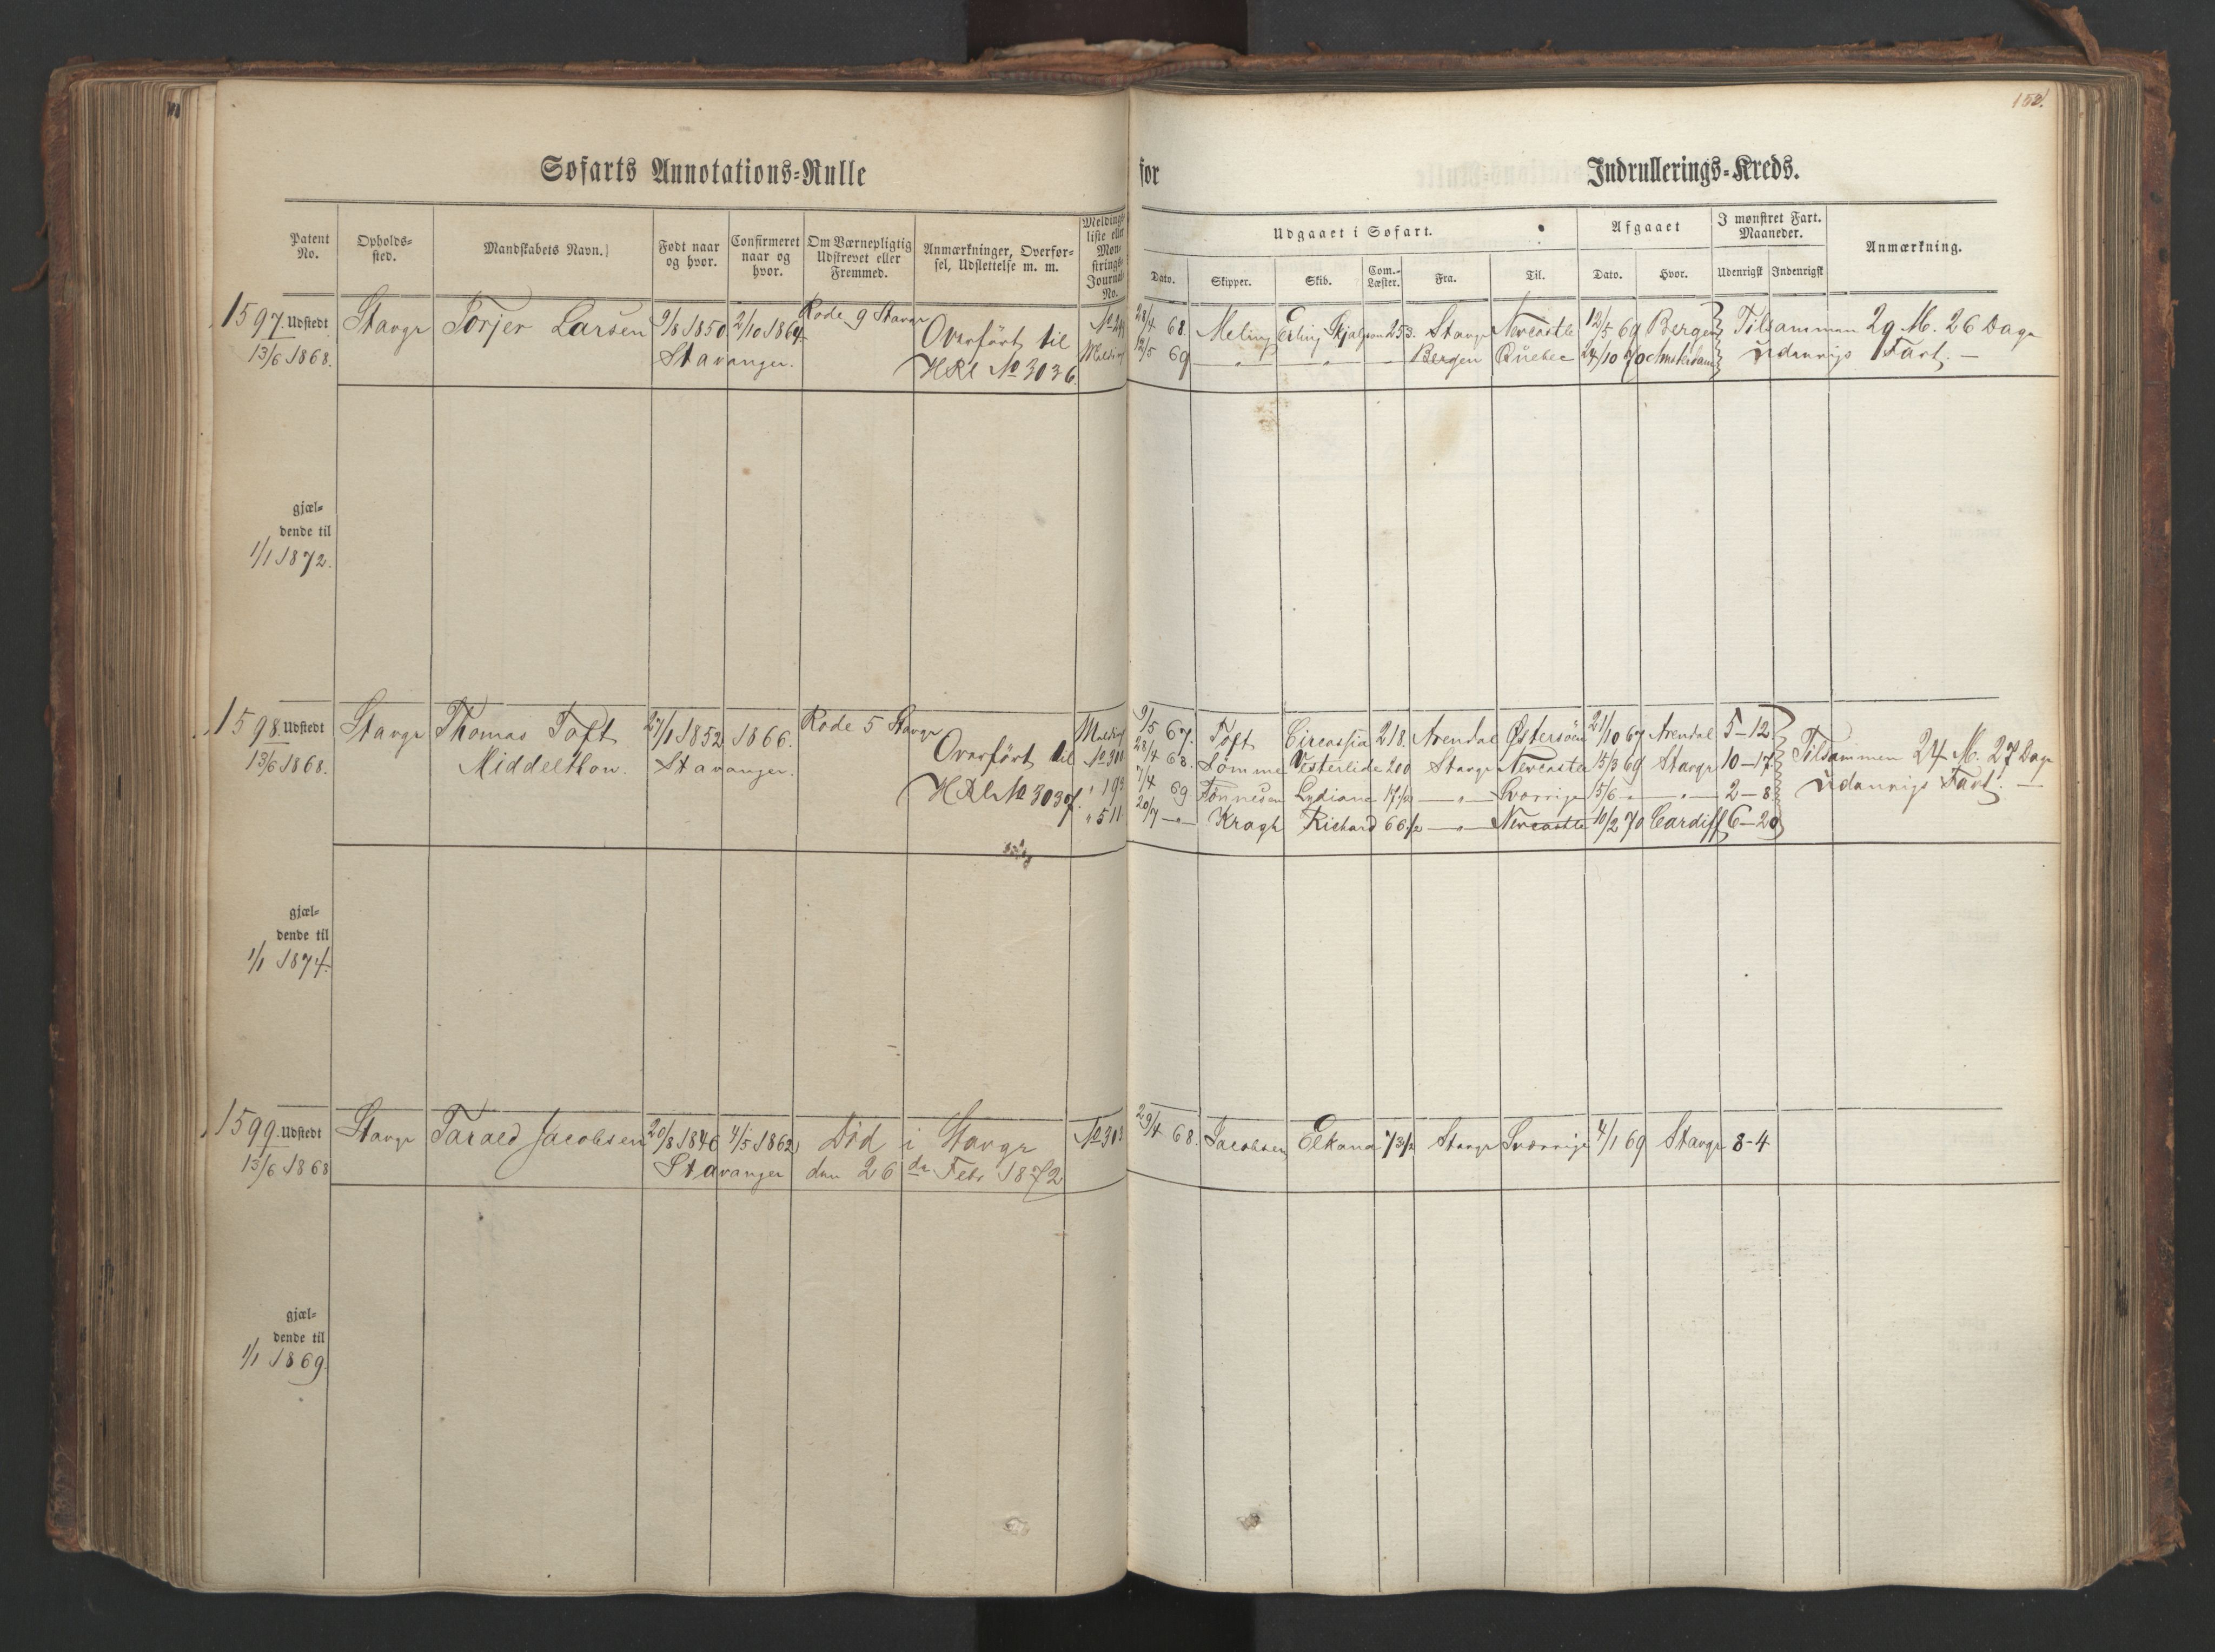 152.
Søfarts Annotations=Rulle for Indrullerings=Kreds.
Patent No. Opholds=sted. Mandskabets Navn. Født naar og hvor. Confirmeret naar og hvor. Om Værnepligtig Udskrevet eller Fremmed. Anmærkninger, Overfør=sel, Udslettelse m. m. Meldings=liste eller Mønstrings=Journal No.
Udgaaet i Søfart. Afgaaet I mønstret Fart. Maaneder. Anmærkning.
Dato. Skipper. Skib. Com.=Læster. Fra. Til. Dato. Hvor. Udenrigsk Indenrigsk
1597. Udstedt Stavgr Torjer Larsen 9/8 1850 2/10 1864 Rode 9 Stavgr Overført til
13/6 1868. Stavanger. HRl No 3036.
28/4 68. Meling Erling Skjalgson 253. Stavgr Newcastle 12/5 69 Bergen Tilsammen 29 M. 26 Dage
12/5 69 — „ — — „ — — Bergen Quebec 24/10 70 Amsterdam udenrigs Fart. —
gjæl=
dende til
1/1 1872.
1598. Udstedt Stavgr Thomas Toft 27/1 1852 1866. Rode 5 Stavgr Overført til
13/6 1868. Middelthon. Stavanger. HRl No 3037.
9/5 67. Toft Circassia 218. Arendal Østersøen 21/10 67 Arendal 5—12
No 300 28/4 68. Lømme Vesterlide 200 Stavgr Newcastle 15/3 69 Stavgr 10—17 Tilsammen 24 M. 27 Dage
„ 193 7/4 69 Tønnesen Lydiana — „ — Sverrige 15/6 — „ — 2—8 udenrigs Fart. —
„ 511 20/7 — „ — Kragh Richard 66 1/2 — „ — Newcastle 10/2 70 Cardiff 6—20
gjæl=
dende til
1/1 1874.
1599. Udstedt Stavgr Tarald Jacobsen 20/8 1846 4/5 1862 Død i Stavgr No 303
13/6 1868 Stavanger den 26 de Febr 1872
29/4 68. Jacobsen Elkana 73 1/2 Stavgr Sverrige 4/1 69 Stavgr 8-4
gjæl=
dende til
1/1 1869.